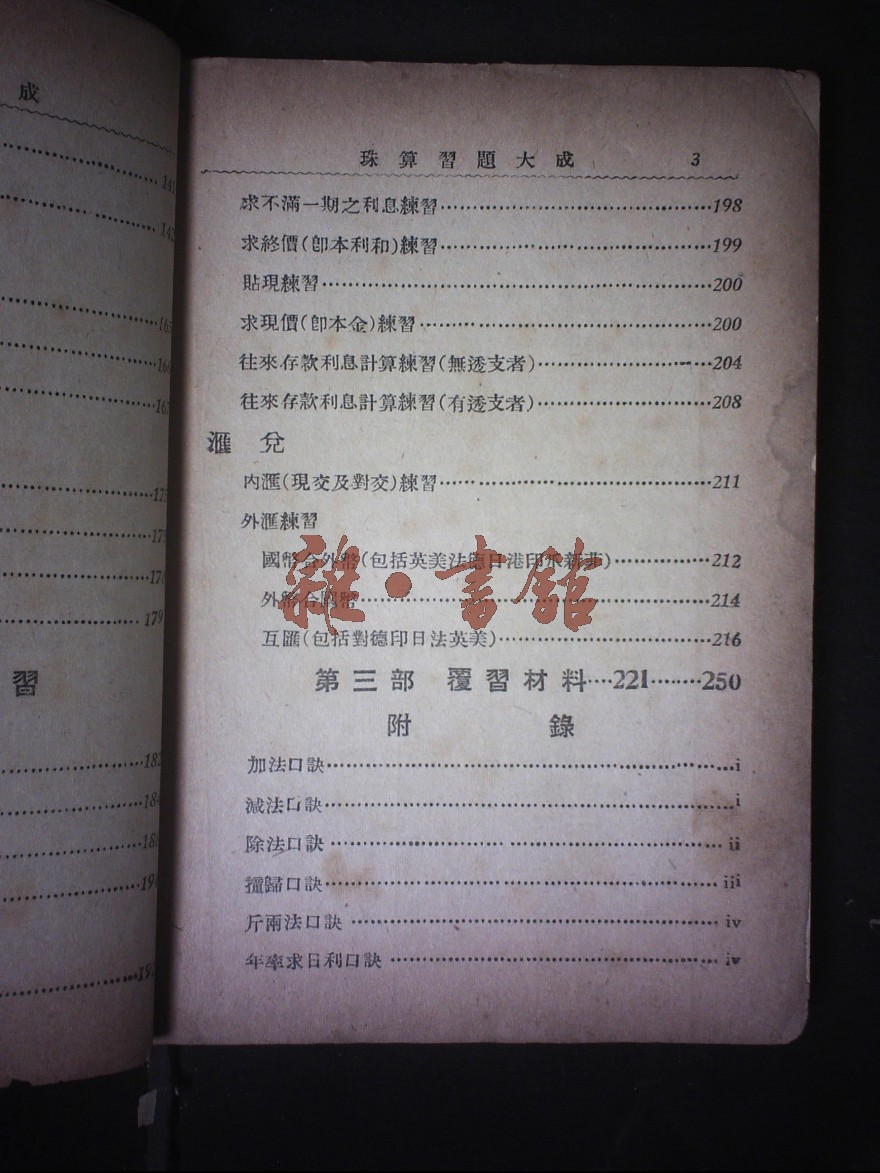 成
141
142
165
166
167
175
175
178
179
習
182
184
188
珠算習題大成 3
求不滿一期之利息練習⋯⋯198
求終價(卽本利和)練習⋯⋯199
貼現練習⋯⋯200
求現價(卽本金)練習⋯⋯200
往來存款利息計算練習(無透支者)⋯⋯204
往來存款利息計算練習(有透支者)⋯⋯208
滙兌
內滙(現交及對交)練習⋯⋯211
外滙練習
國幣合外幣(包括英美法德日港印爪新菲)⋯⋯212
外幣合國幣⋯⋯214
互匯(包括對德印日法英美)⋯⋯216
第三部 覆習材料⋯⋯221⋯⋯250
附錄
加法口訣⋯⋯i
減法口訣⋯⋯i
除法口訣⋯⋯ii
撞歸口訣⋯⋯iii
斤兩法口訣⋯⋯iv
年率求日利口訣⋯⋯iv
雜·書館